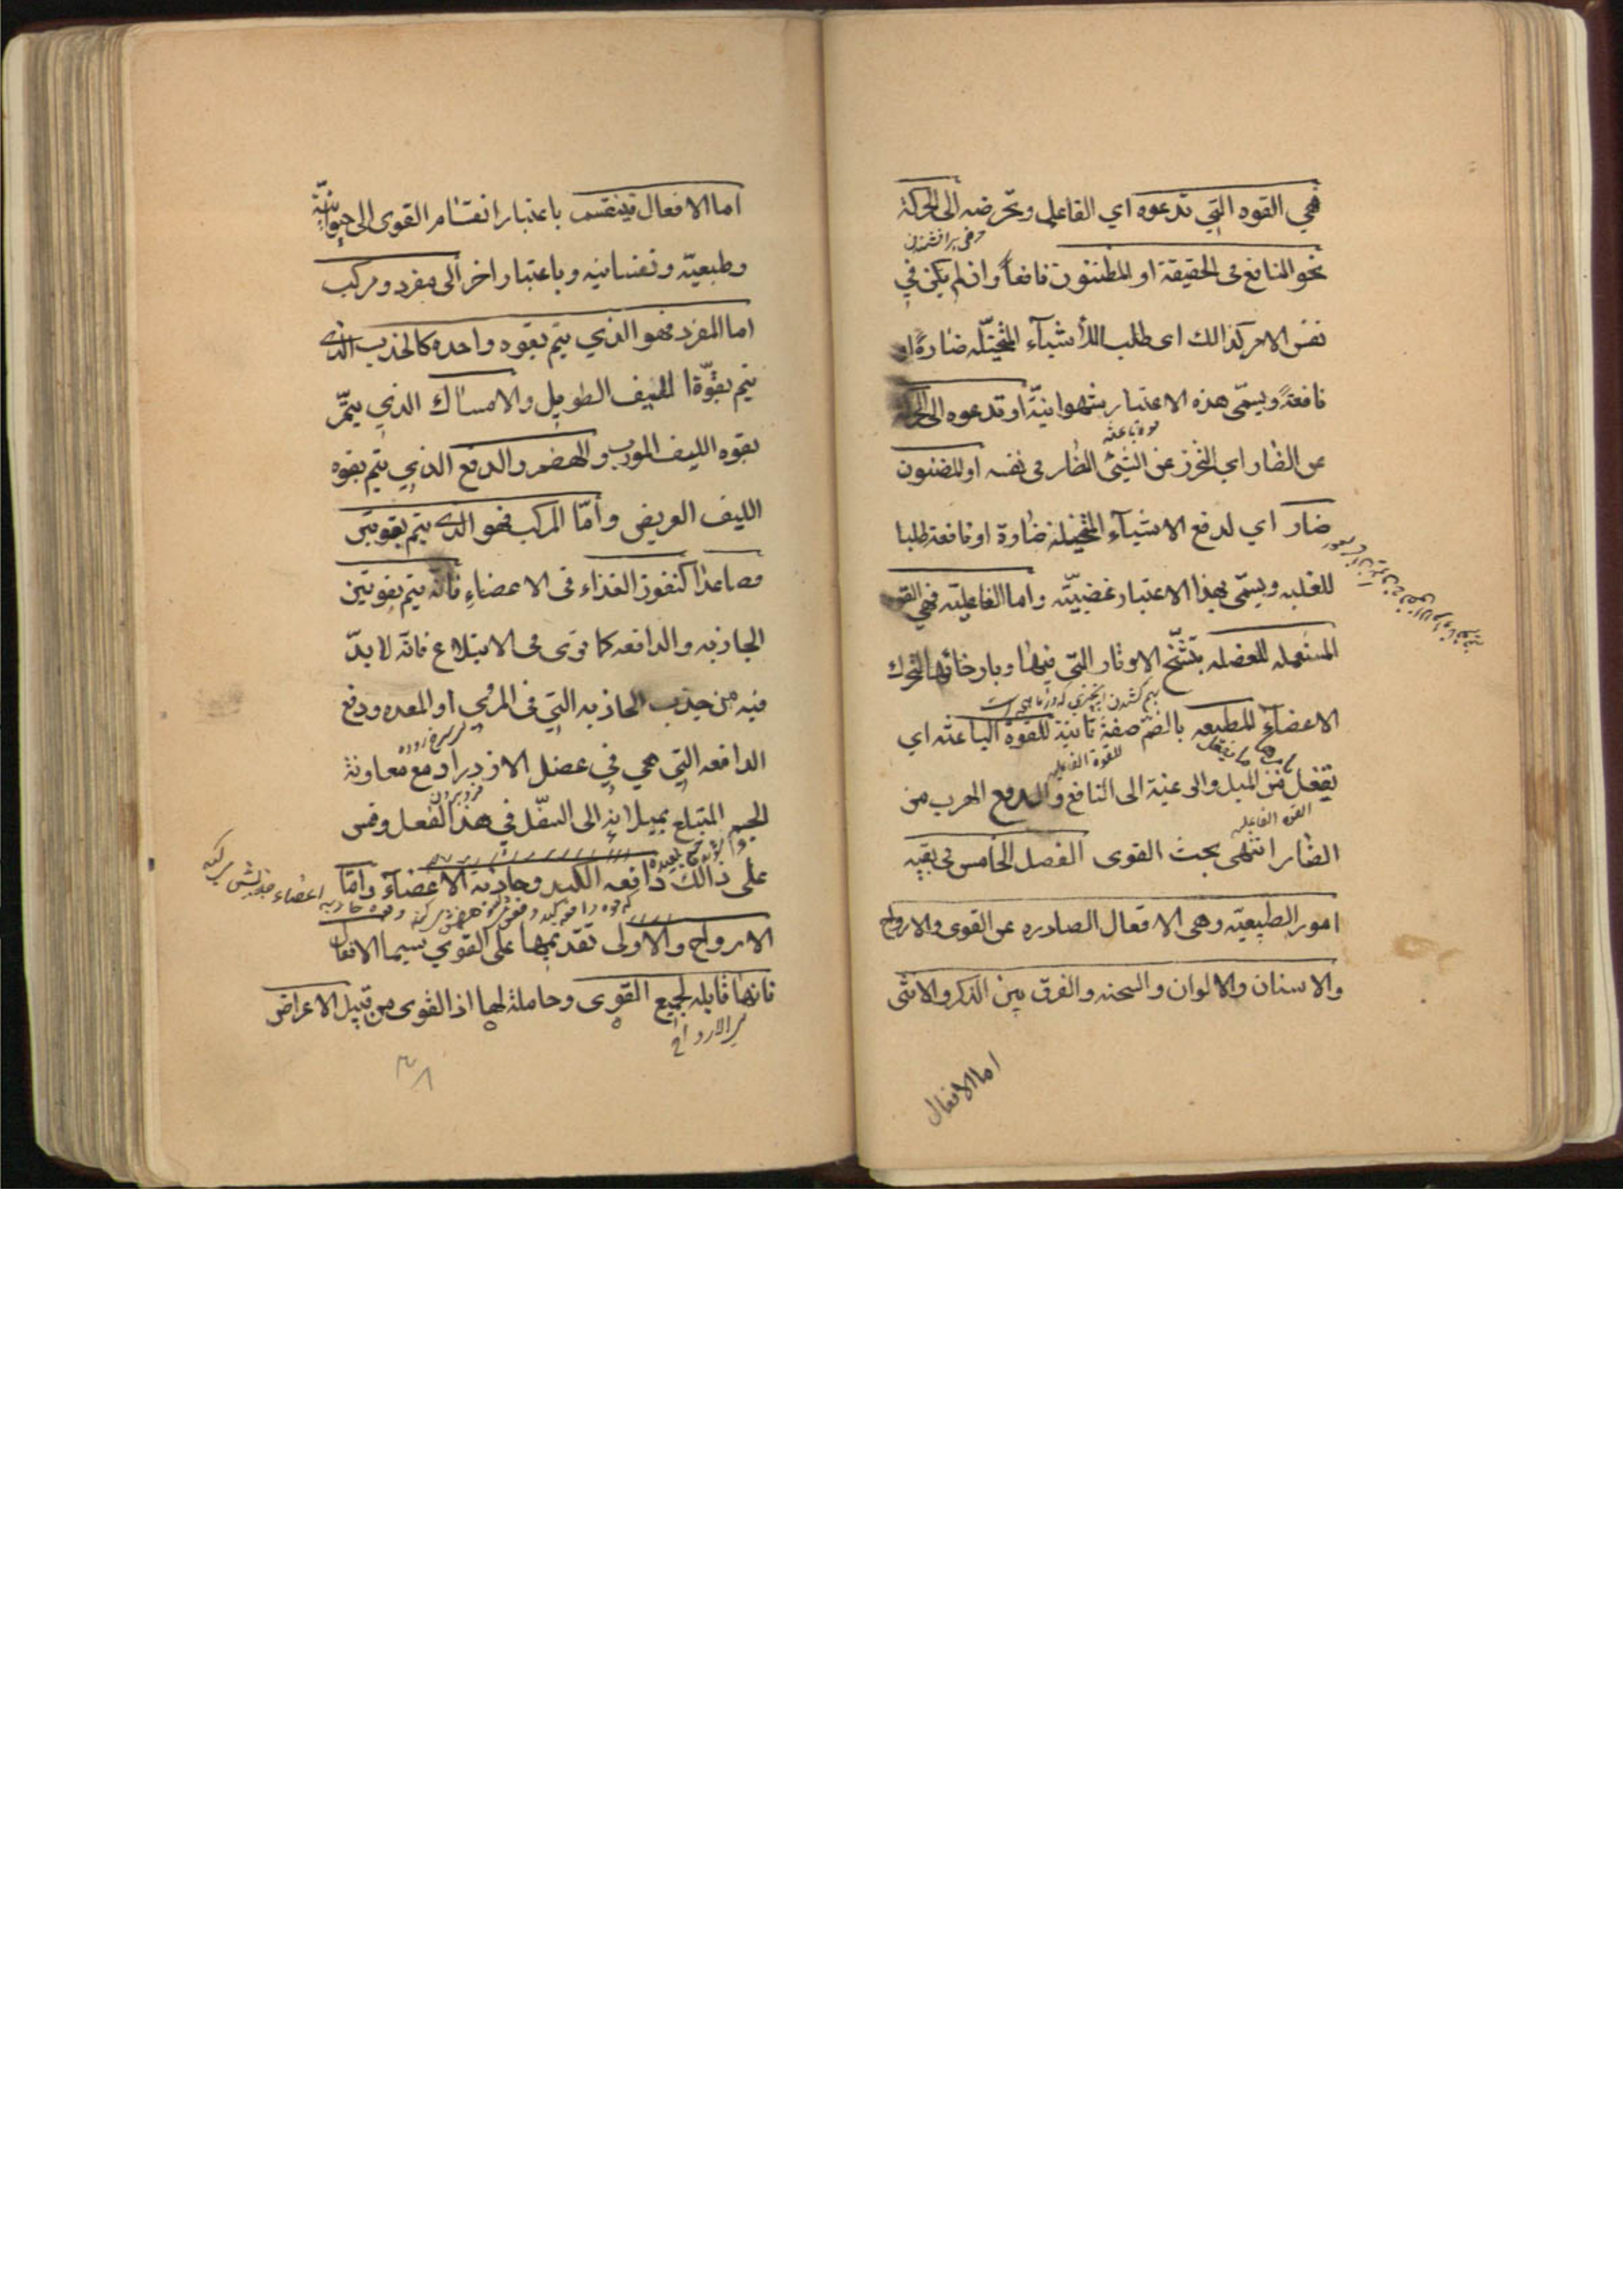 فهي القوه التي تدعوه اي الفاعلي وتحرضه الى الحركة
نحو النافع فى الحقيقة او المظنون نافعاً وان لم يكن في
نفس الامر كذالك اى طلب الأشيآء المتخيّله ضارةً او
نافعةً ويسمّى هذه الاعتبار شهوانيّة او تدعوه الى الحركة
قوة باعثه
عن الضار اي التحرز عن الشئ الضار فى نفسه او المضنون
ضار اي لدفع الاشيآء المتخيله ضارة او نافعة طلبا
للغلبه ويسمّى بهذا الاعتبار غضبيّته واما الفاعليته فهي القوه
المستعمله للعضله بتشنّج الاوتار التّى فيها وبارخائها لتحرك
الاعضاء المطيعه بالضمّ صفة ثانية للقوة الباعثه اي
للقوة الفاعليه
تفعل من الميل والرعنية الى النافع والدفع الهرب من
القوه الفاعليه
الضار انتهى بحث القوى الفصل الخامس فى بقيه
امور الطبيعيّه وهى الافعال الصادره عن القوى والارواح
والاسنان والالوان والسحنه والفرق بين الذكر والانثى
اما الافعال
اما الافعال فينقسم باعتبار انقسام القوى الى حيوانيّة
وطبيعيّه ونفسانيه وباعتبار اخر الى مفرد ومركب
اما المفرد فهو الذي يتم بقوه واحده كالجذب الذى
يتم بقوّة الليف الطويل والامساك الذي يتمّ
بقوه الليف المورب والهضم والدفع الذي يتم بقوه
الليف العريض وأمّا المركب فهو الذى يتم بقوتين
فصاعدا كنفوز الغذاء فى الاعضاءِ فانّه يتم بقوتين
الجاذبه والدافعه كما ترى فى الابتلاع فانّه لا بدّ
فيه من جذب الجاذبه التي فى المرئي او المعده ودفع
سرخ روده
الدافعه التي هي في عضل الازدراد مع معاونة
فرو بردن
الجسم المبتلع بميلانه الى السفّل في هذا الفعل وقس
على ذالك دافعه الكبد وجاذبة الاعضآء وامّا
الارواح والاولى تقديمها على القوي سيما الافعال
فانها قابله لجميع القوى وحاملة لها اذ القوى من قبيل الاعراض
الارواح